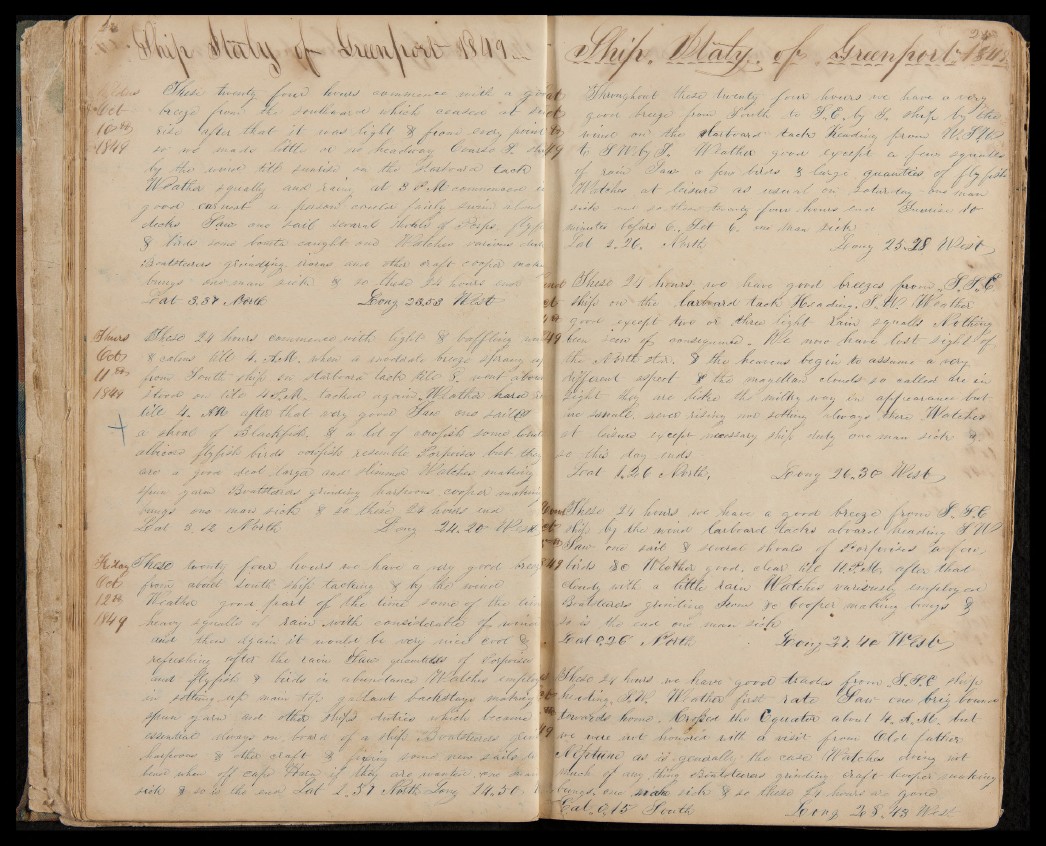 Ship Italy of Greenport 1849
Oct
10th
1849
These twenty four hours commence with a
breeze from the southward which ceased at
after that it was light & from every point
so we made little or no headway
by the wind till sunrise on the starboard tack
Weather squally and rainy at 8 P.M commenced
good earnest a person could fairly swim about
decks Saw one sail several shoals of Porps
& birds some bonita caught one Watches various
Boatsteerers grinding irons and other craft cooper
bungs one man sick & so these 24 hours end
Lat 3.37 North Long 23.53 West
Thurs
Oct
11th
1849
These 24 hours commence with light & baffling
& calms till 4. A.M. when a moderate breeze sprang up
from South ship on starboard tack till 8. went about
stood on till 4 P.M. tacked again. Weather
till 4. AM after that very good Saw one sail
a shoal of Blackfish, & a lot of cowfish some
flyfish birds cowfish resemble Porpoises but they
are a good deal larger and slimmer Watches making
spun yarn Boatsteerers grinding harpoons cooper making
bungs one man sick & so these 24 hours end
Lat 3.12 North Long 24.20 West
Friday
Oct
12th
1849
These twenty four hours we have a very good
from about South ship tacking & by the wind
Weather good part of the time some of the
heavy squalls of rain with considerable of wind
and then again it would be very nice cool &
refreshing after the rain Saw quantities of Porpoises
and flyfish & birds in abundance Watches
in setting up main top gallant backstays making
spun yarn and other ships duties which become
essential always on board of a ship Boatsteerers
harpoons & other craft & some new sails to
bend when off cape Horn if they are wanted one man
sick & so is the end Lat 2.57 North Long 24.50
Ship Italy of Greenport 1849
Throughout these twenty four hours we have a very
good breeze from South to S.E. by S. ship by the
wind on the starboard tack heading from W.S.W.
to S.W. by S. Weather good except a few squalls
of rain Saw a few birds & large quantities of fly fish
Watches at leisure as usual on Saturday one man
sick and so these twenty four hours end Sunrise 10
minutes before 6. Set 6. one man sick
Lat 2.26. North Long 25.28 West
These 24 hours we have good breezes from S.S.E
ship on the larboard tack Heading S.W. Weather
good except two or three light rain squalls Nothing
been seen of consequence. We now have lost sight of
the North star. & the heavens begin to assume a very
different aspect & the magellan clouds so called are in
sight they are like the milky way in appearance but
are small. never rising nor setting always there Watches
at leisure except necessary ship duty one man sick
so this day ends
Lat 1.26 North, Long 26.30 West
These 24 hours we have a good breeze from S.S.E
ship by the wind larboard tacks aboard heading S W
Saw one sail & several shoals of Porpoises a few
birds &c Weather good, clear till P.M. after that
cloudy with a little rain Watches variously employed
Boatsteerers grinding Irons &c Cooper making bungs &
so is the end one man sick
Lat 0.26 North Long 27.40 West
These 24 hours we have good trades from S.S.E ship
heading S.W. Weather first rate Saw one brig bound
towards home. Crossed the Equator about 4. A.M. but
we were not honored with a visit from Old father
Neptune as is generally the case Watches doing not
much of any thing Boatsteerers grinding craft Cooper making
bungs, one man sick & so these 24 hours are gone
Lat. 0.15 South Long 28.43 West